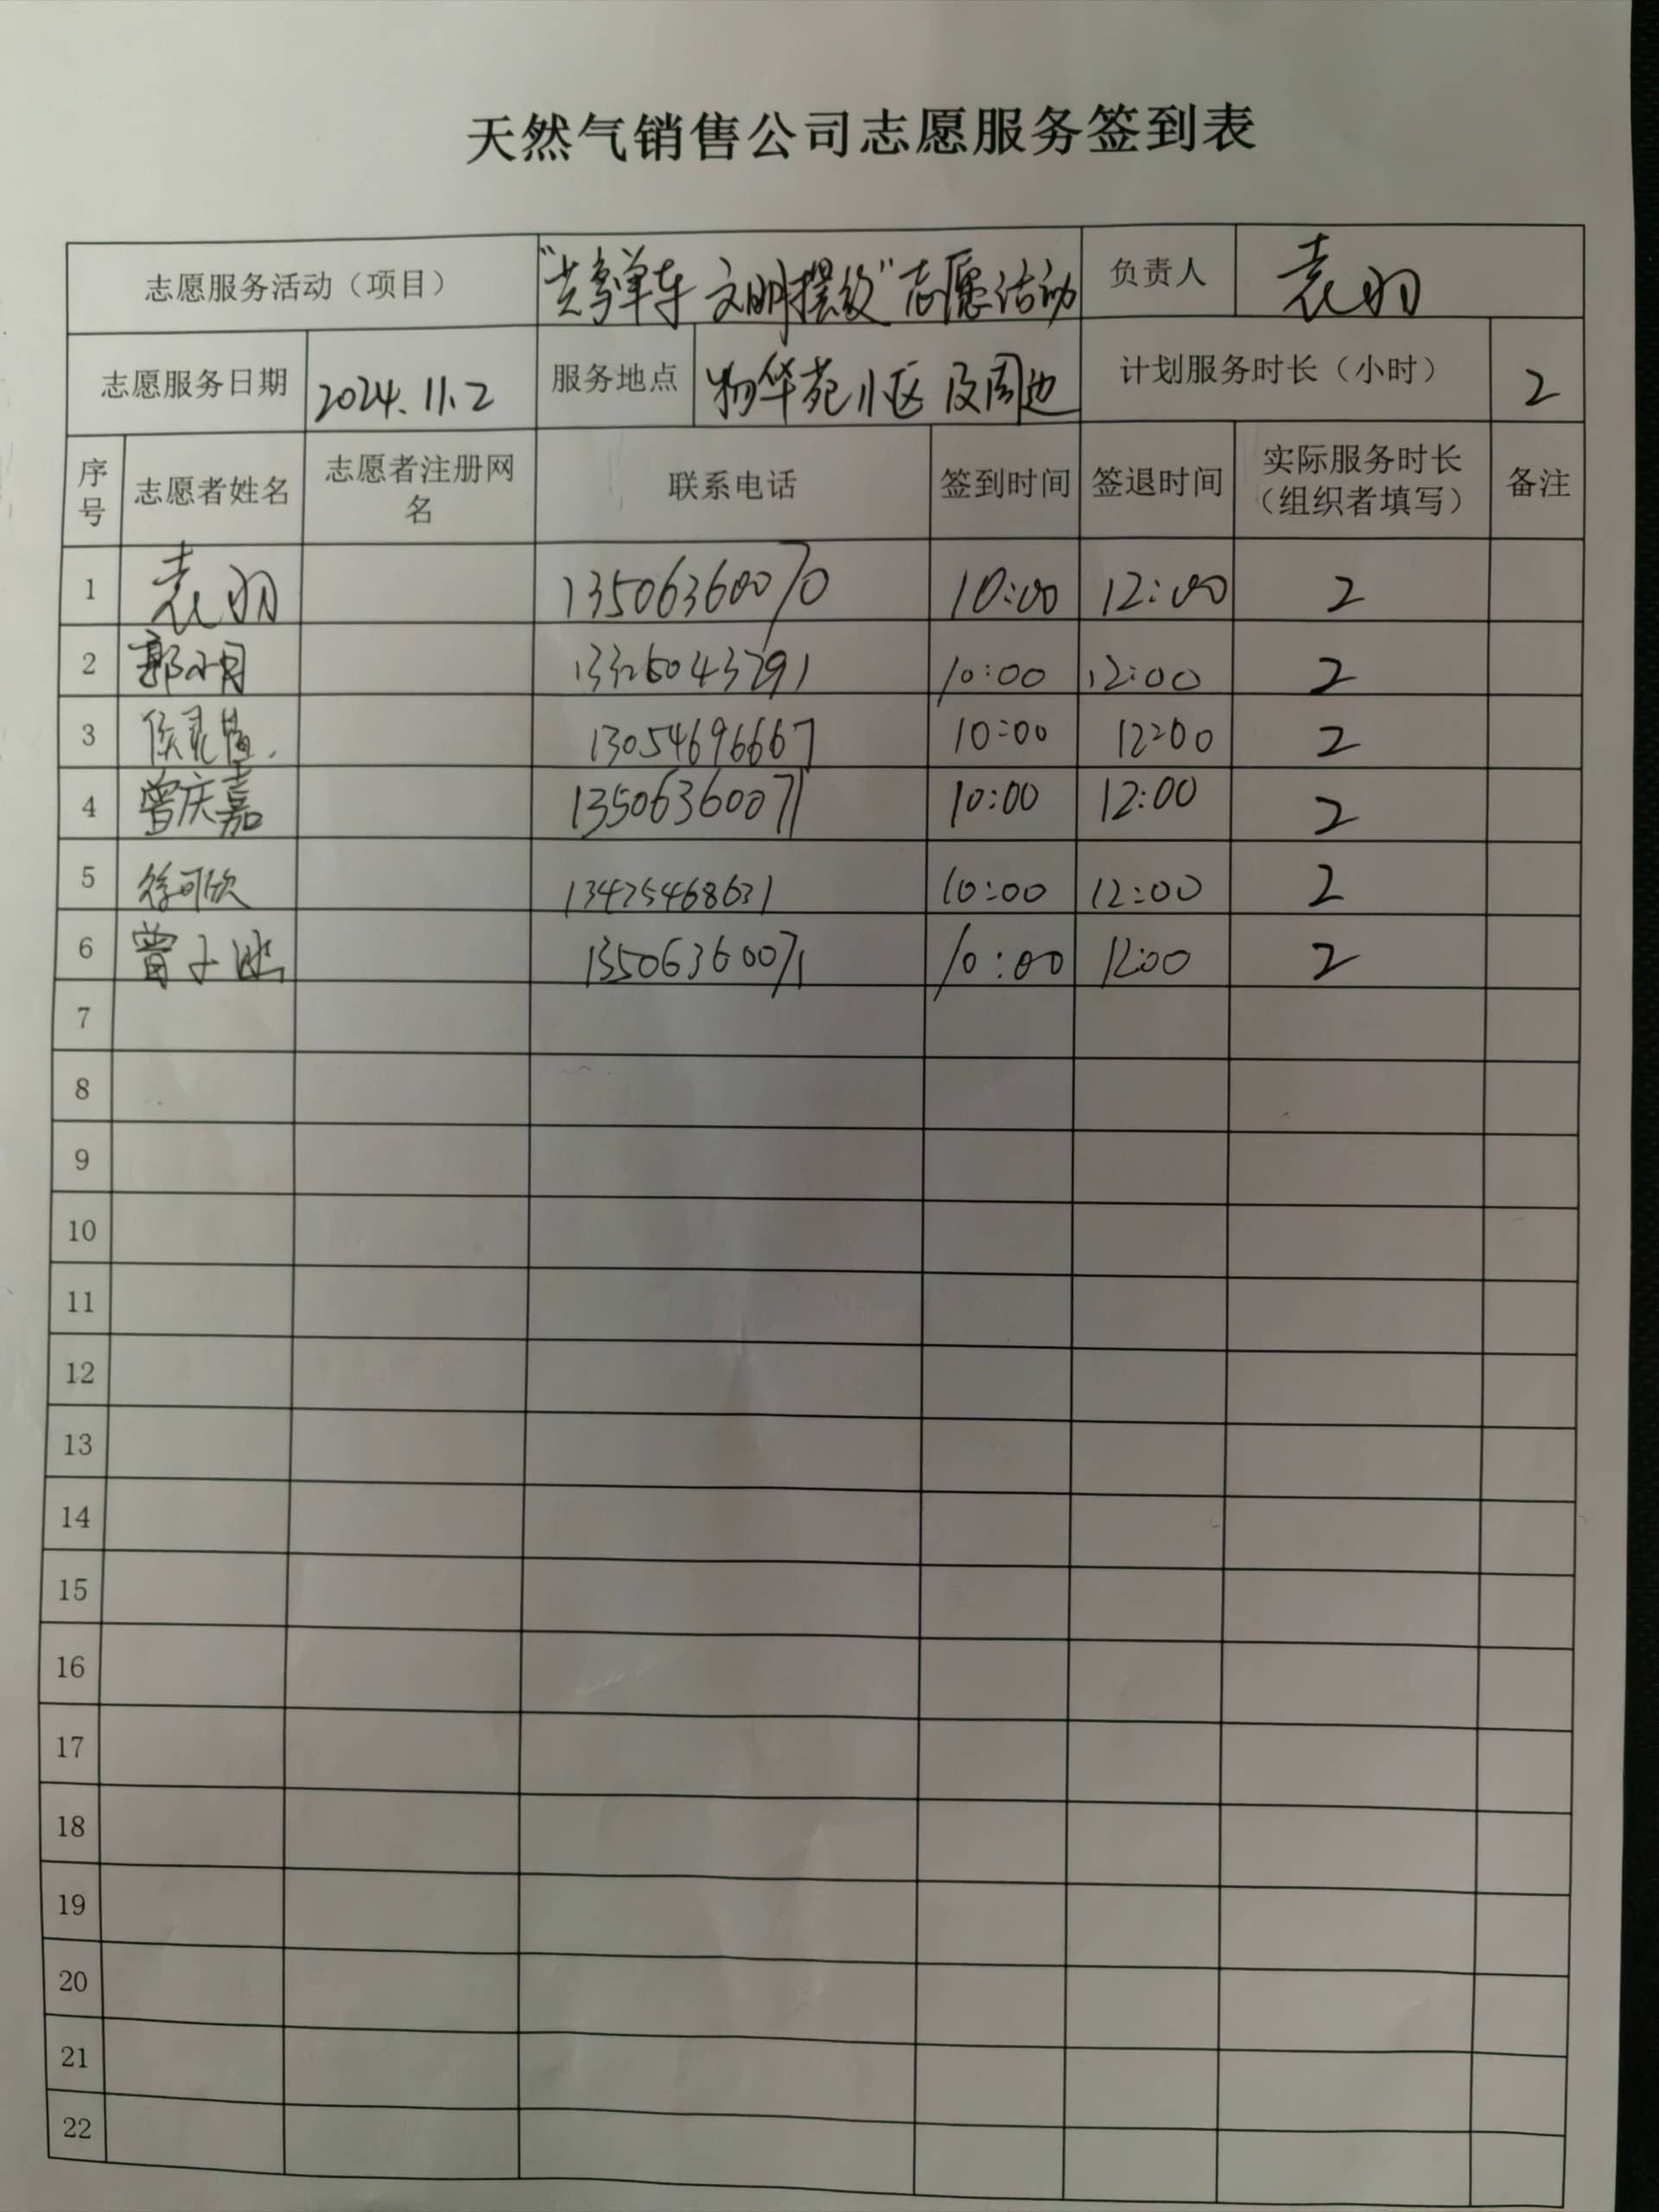 天然气销售公司志愿服务签到表
志愿服务活动（项目） “共享单车 文明摆放”志愿活动 负责人 袁羽
志愿服务日期 2024.11.2 服务地点 物华苑小区及周边 计划服务时长（小时） 2
序号 志愿者姓名 志愿者注册网名 联系电话 签到时间 签退时间 实际服务时长（组织者填写） 备注
1 袁羽 13506360070 10:00 12:00 2
2 郭 13326043291 10:00 12:00 2
3 侯 13054696667 10:00 12:00 2
4 曾庆嘉 13506360071 10:00 12:00 2
5 徐可欣 13475468631 10:00 12:00 2
6 曾子 13506360071 10:00 12:00 2
7
8
9
10
11
12
13
14
15
16
17
18
19
20
21
22